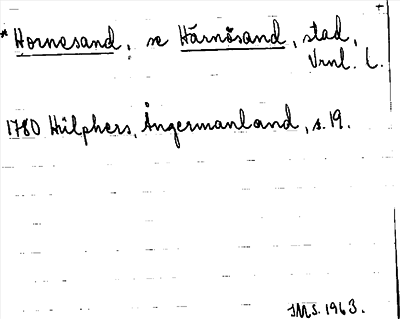 * Hornesand, se Härnösand, stad,
Vrnl. l.
1780 Hülphers, Ångermanland, s. 19.
JMS. 1963.